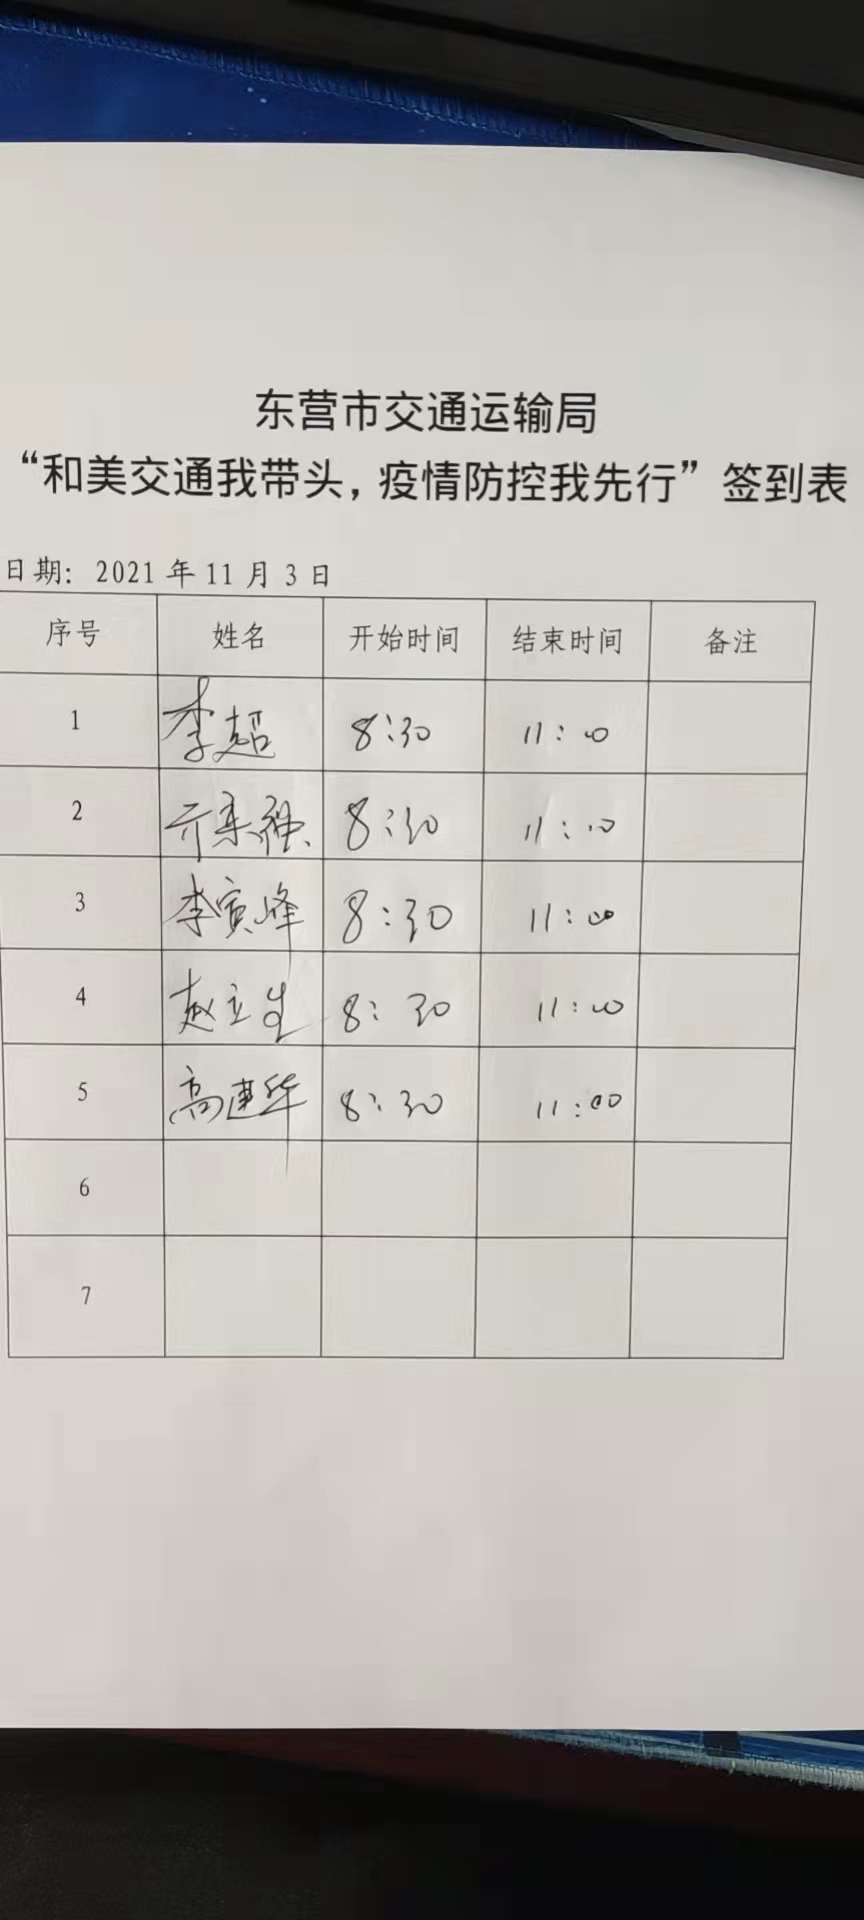 东营市交通运输局
“和美交通我带头，疫情防控我先行”签到表
日期：2021年11月3日
序号 姓名 开始时间 结束时间 备注
1 李超 8:30 11:00
2 8:30 11:00
3 李寅峰 8:30 11:00
4 赵立生 8:30 11:00
5 高建华 8:30 11:00
6
7